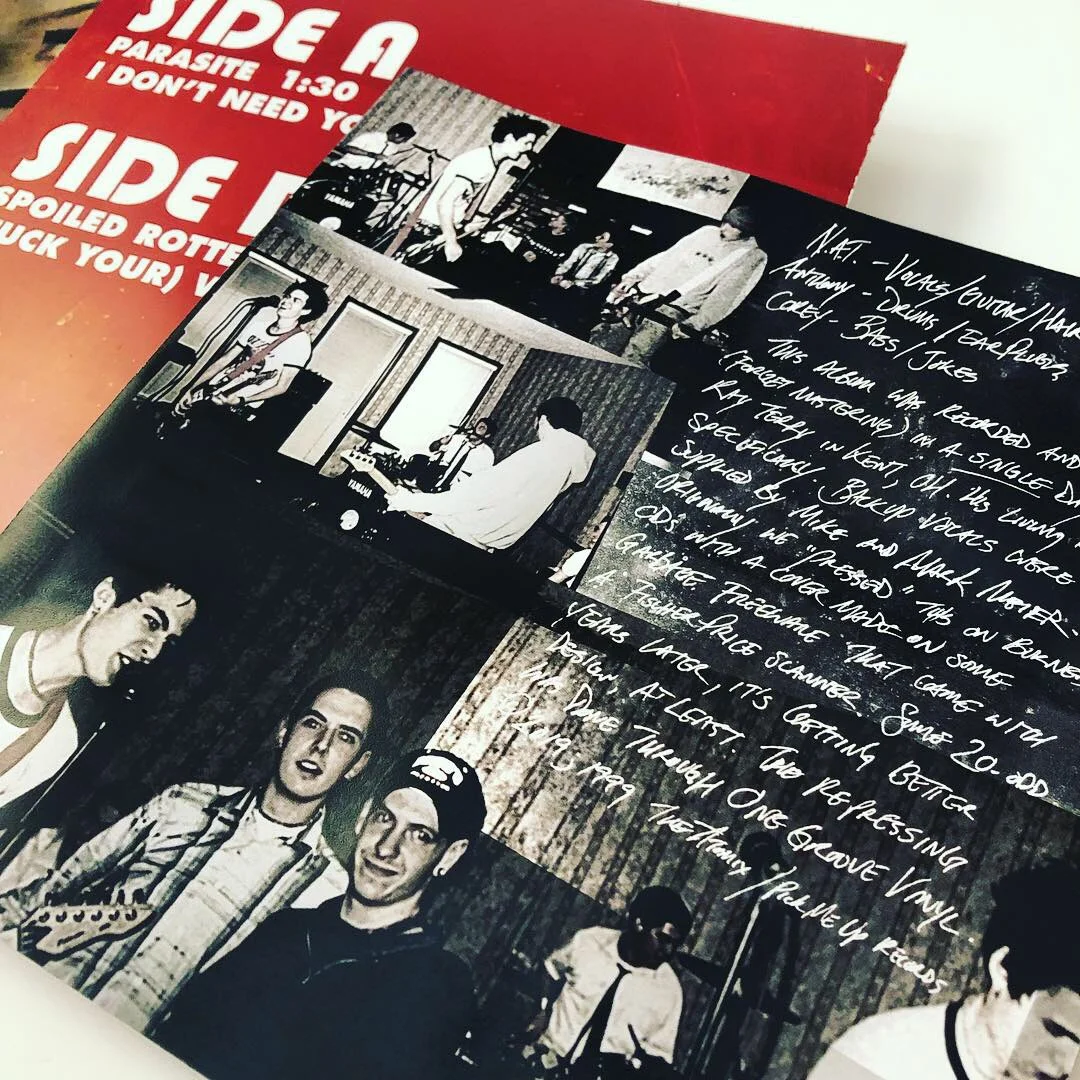 SIDE A
PARASITE 1:30
I DON'T NEED YO
SIDE
SPOILED ROTTE
UCK YOUR) V
YAMAHA
YAMAHA
N.A.T. - VOCALS/GUITAR/HAIR
ANTHONY - DRUMS/EARPLUGS
COREY - BASS/JOKES
THIS ALBUM WAS RECORDED AND
(FORGET MASTERING) IN A SINGLE DA
RAY TERRY IN KENT, OH. HIS LIVING
SPECIFICALLY. BACKUP VOCALS WERE
SUPPLIED BY MIKE AND MARK
ORIGINALLY WE "PRESSED" THIS ON BURNE
CDS WITH A COVER MADE ON SOME
GARBAGE FREEWARE THAT CAME WITH
A FISCHER PRICE SCANNER. SOME 20-ODD
YEARS LATER, IT'S GETTING BETTER
DESIGN, AT LEAST. THE REPRESSING
WAS DONE THROUGH ONE GROOVE VINYL.
℗ 2019, 1999 /PICK ME UP RECORDS